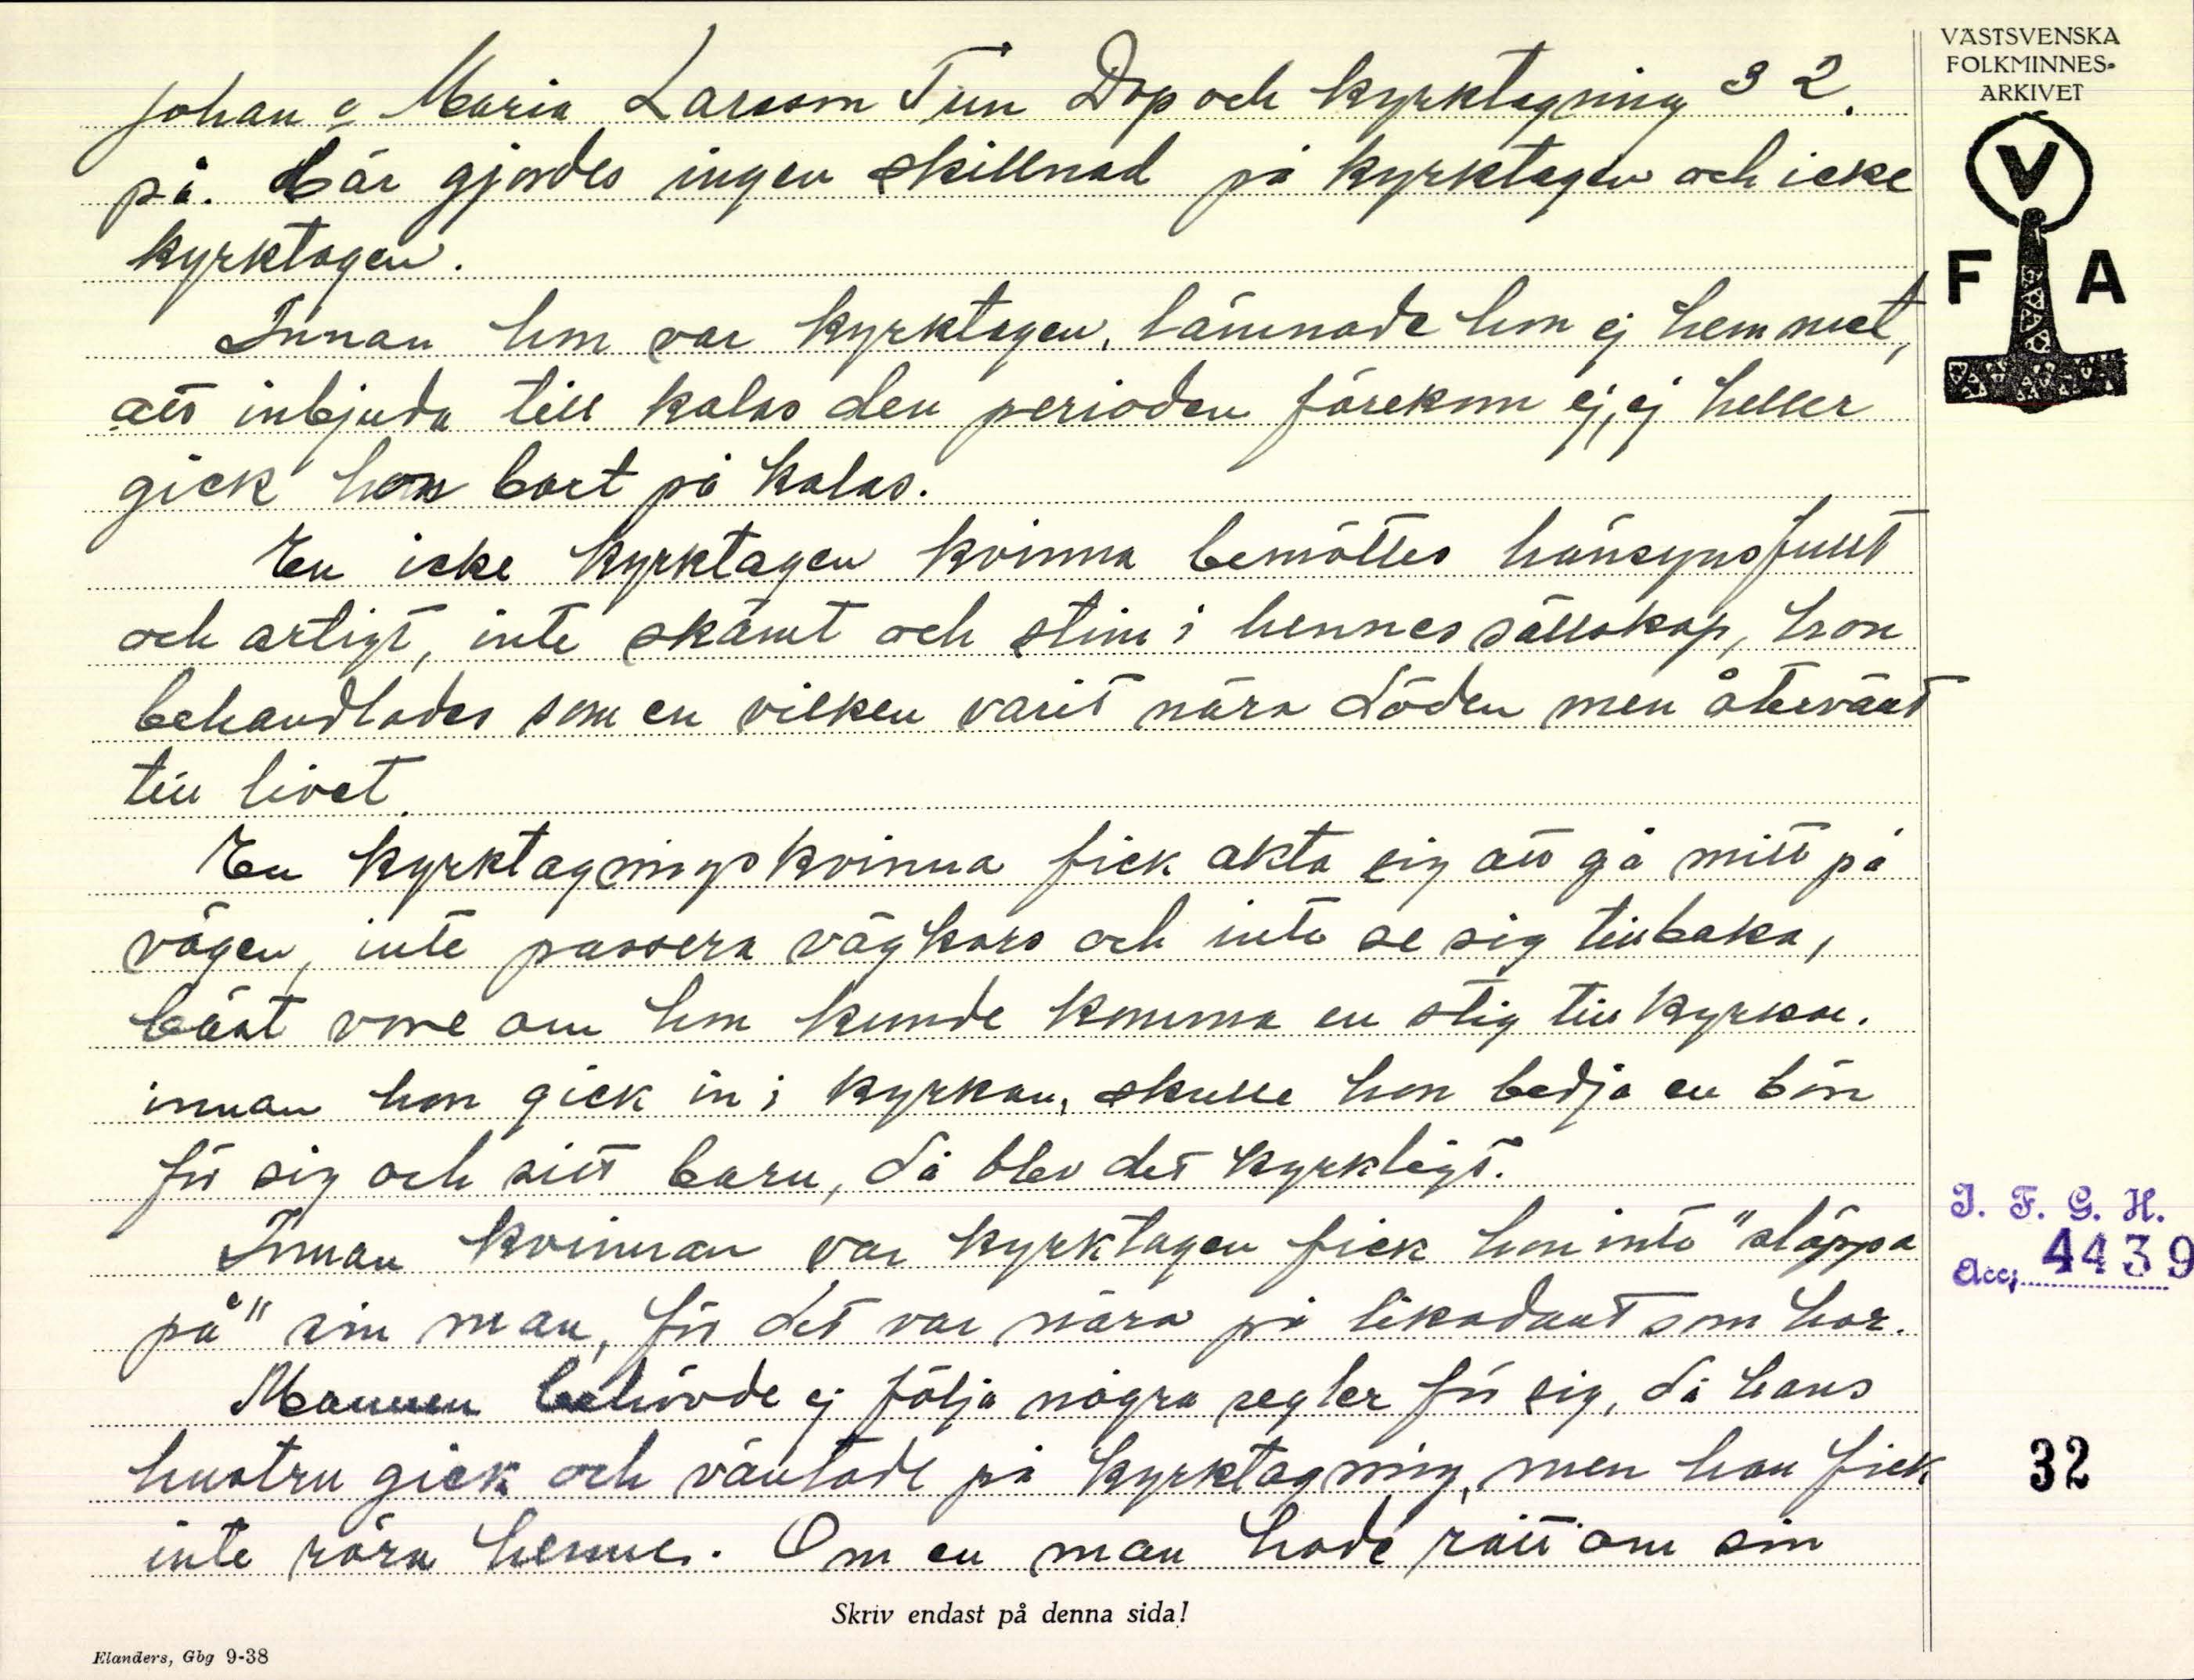 VÄSTSVENSKA
FOLKMINNES-
ARKIVET
V
F A
Johan o Maria Larsson Tun Dop och kyrktagning 32.
på. Här gjordes ingen skillnad på kyrktagen och icke
kyrktagen.
Innan hon var kyrktagen, lämnade hon ej hemmet,
att inbjuda till kalas den perioden förekom ej, ej heller
gick hon bort på kalas.
En icke kyrktagen kvinna bemöttes hänsynsfullt
och artigt, inte skämt och stim i hennes sällskap, hon
behandlades som en vilken varit nära döden men återvänt
till livet.
En kyrktagningskvinna fick akta sig att gå mitt på
vägen, inte passera vägkors och inte se sig tillbaka,
bäst vore om hon kunde komma en stig till kyrkan.
innan hon gick in i kyrkan, skulle hon bedja en bön
för sig och sitt barn, då blev det kyrkligt.
Innan kvinnan var kyrktagen fick hon inte "släppa
på" sin man, för det var nära på likadant som hor.
Mannen behövde ej följa några regler för sig, då hans
hustru gick och väntade på kyrktagning, men han fick
inte röra henne. Om en man hade rått om sin
J. F. G. H.
Acc; 4439
32
Skriv endast på denna sida!
Elanders, Gbg 9-38